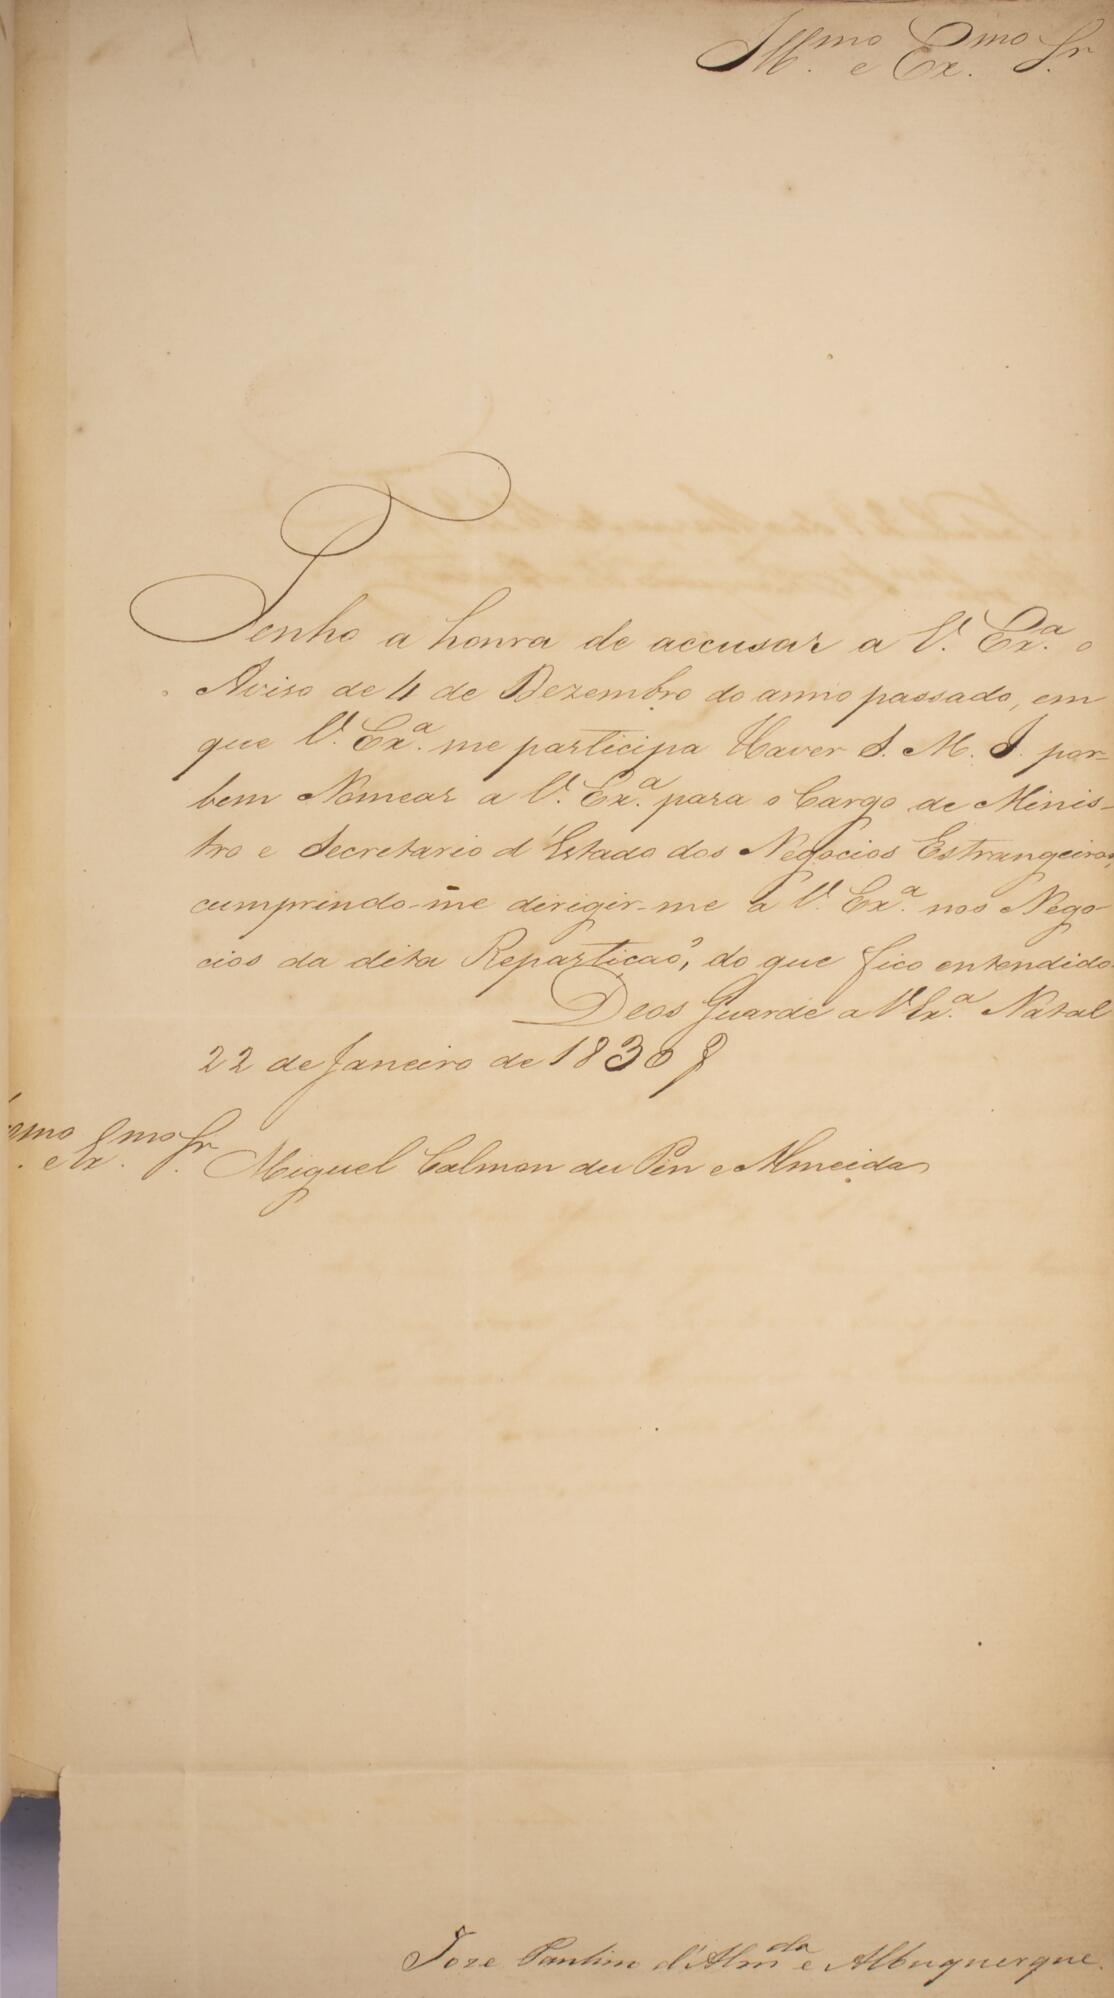 Ill.mo e Ex.mo Sr.
Tenho a honra de accusar a V. Ex.a o
Aviso de 4 de Dezembro do anno passado, em
que V. Ex.a me participa Haver S. M. I. por-
bem Nomear a V. Ex.a para o Cargo de Minis-
tro e Secretario d'Estado dos Negocios Estrangeiros,
cumprindo-me dirigir-me a V. Ex.a nos Nego-
cios da dita Repartição, do que fico entendido.
Deos Guarde a V. Ex.a Natal
22 de Janeiro de 1830
mo e Ex.mo Sr. Miguel Calmon du Pin e Almeida
Joze Paulino d'Alm.da e Albuquerque.